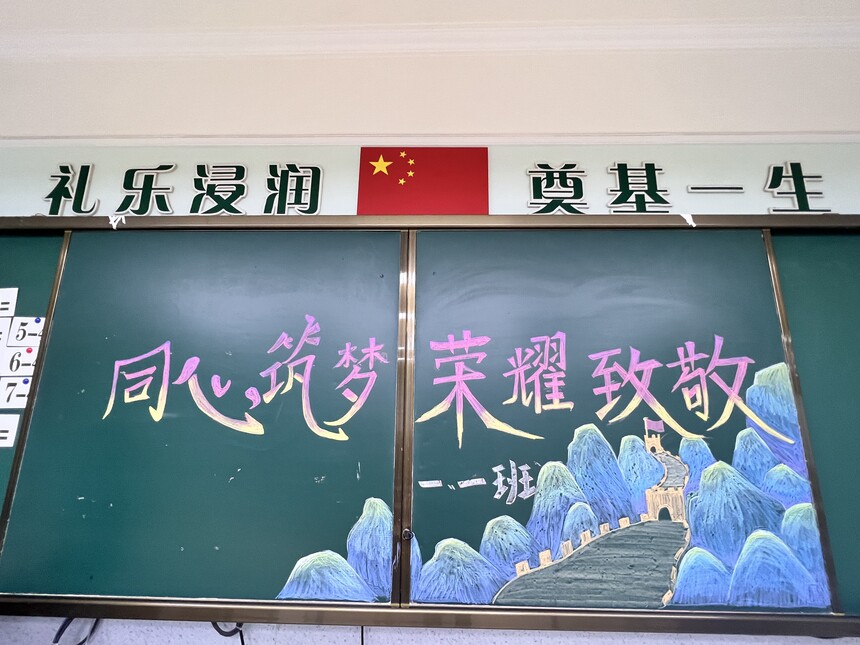 礼乐浸润 奠基一生
同心筑梦 荣耀致敬
一、一班
=
5-4
6-
7-
=